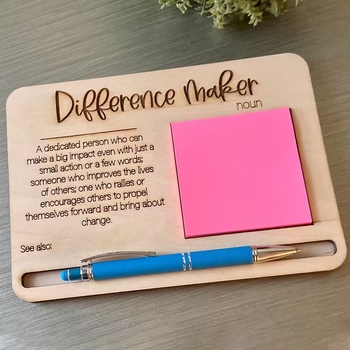 Difference Maker
noun
A dedicated person who can
make a big impact even with just a
small action or a few words;
someone who improves the lives
of others; one who rallies or
encourages others to propel
themselves forward and bring about
change.
See also: